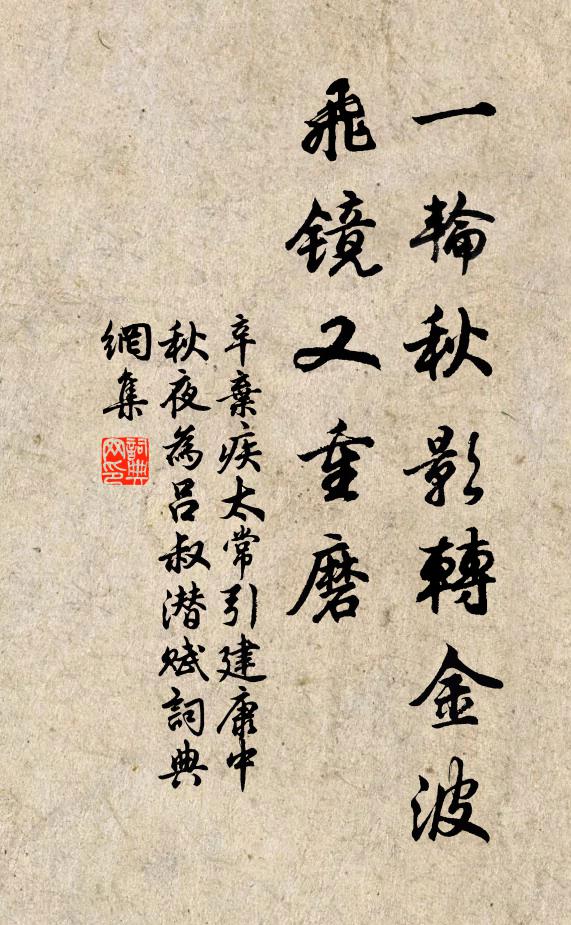 一輪秋影轉金波
飛鏡又重磨
辛棄疾太常引建康中
秋夜為呂叔潜賦詞典
網集
詞典
网印